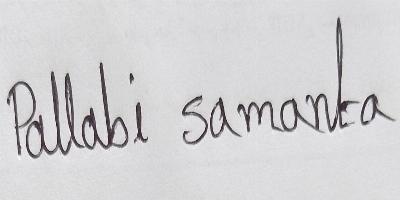 Pallabi samanta